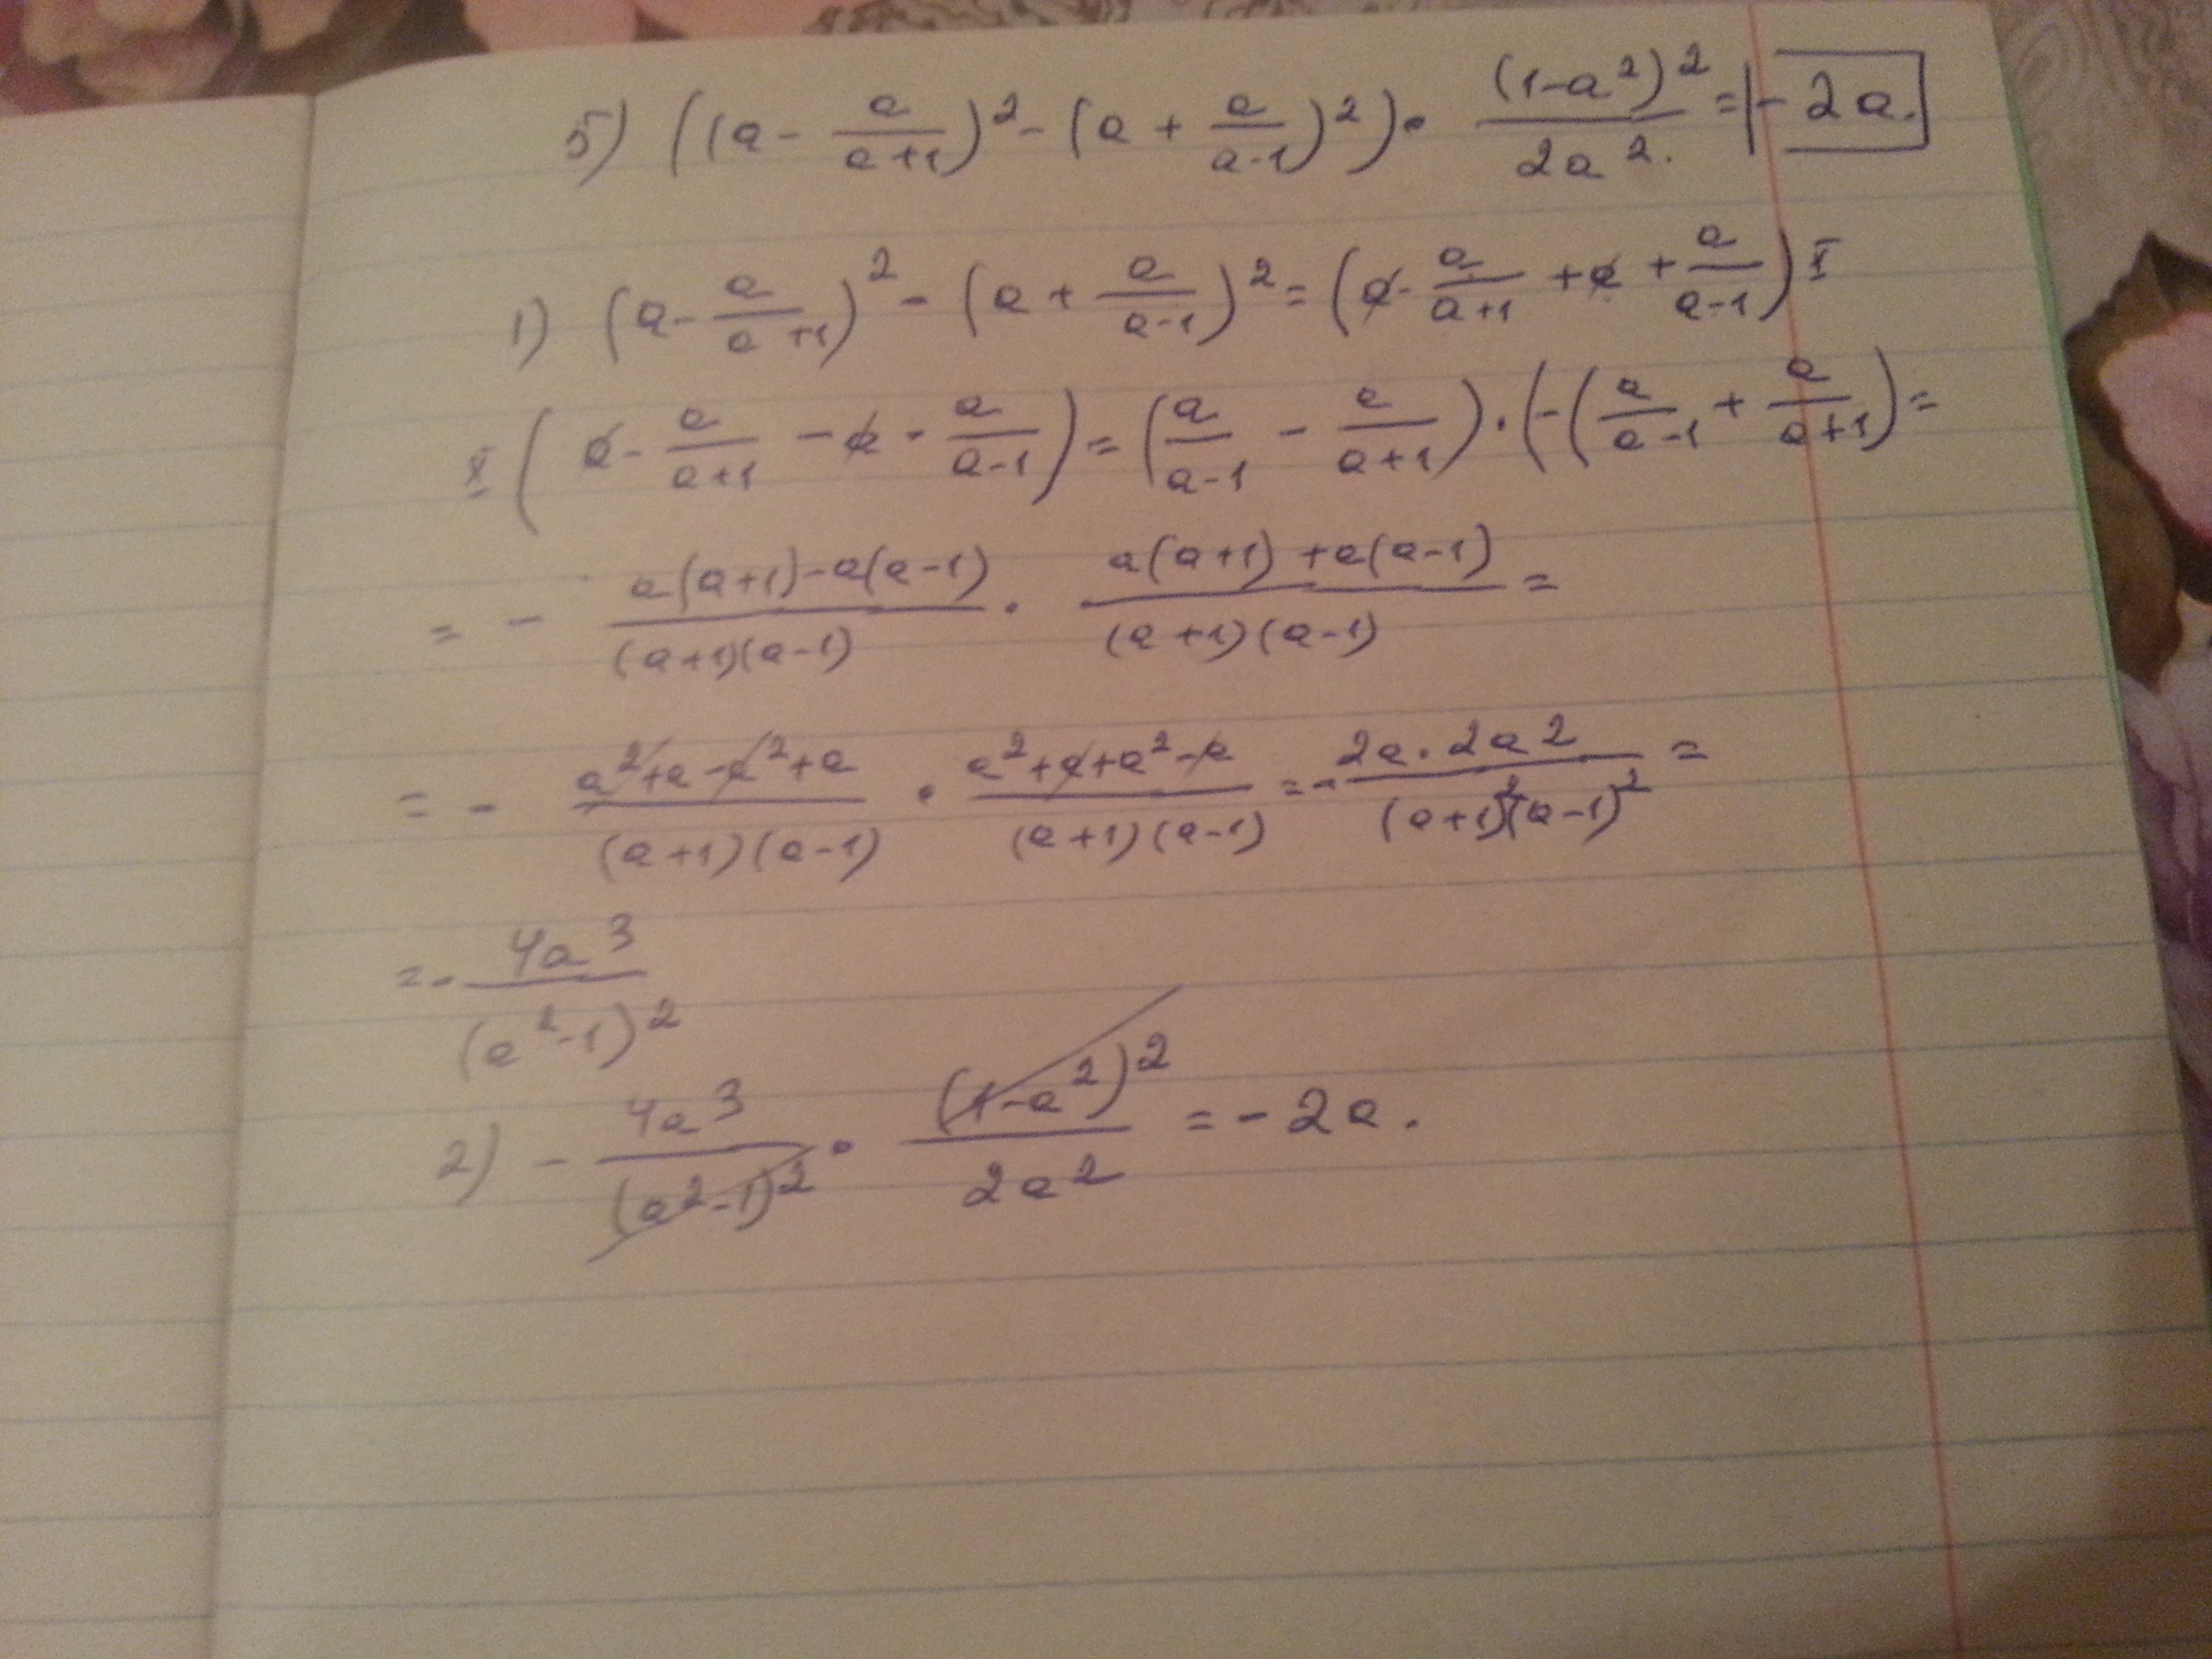 5) ((a - a/(a+1))² - (a + a/(a-1))²) • (1-a²)²/2a². = |-2a.|
1) (a - a/(a+1))² - (a + a/(a-1))² = (a - a/(a+1) + a + a/(a-1)) x
x (a - a/(a+1) - a - a/(a-1)) = (a/(a-1) - a/(a+1)) · (-(a/(a-1) + a/(a+1)) =
= - (a(a+1)-a(a-1))/((a+1)(a-1)) · (a(a+1)+a(a-1))/((a+1)(a-1)) =
= - (a²+a-a²+a)/((a+1)(a-1)) • (a²+a+a²-a)/((a+1)(a-1)) = - (2a·2a²)/((a+1)²(a-1)²) =
= - 4a³/(a²-1)²
2) - 4a³/(a²-1)² • (1-a²)²/2a² = -2a.